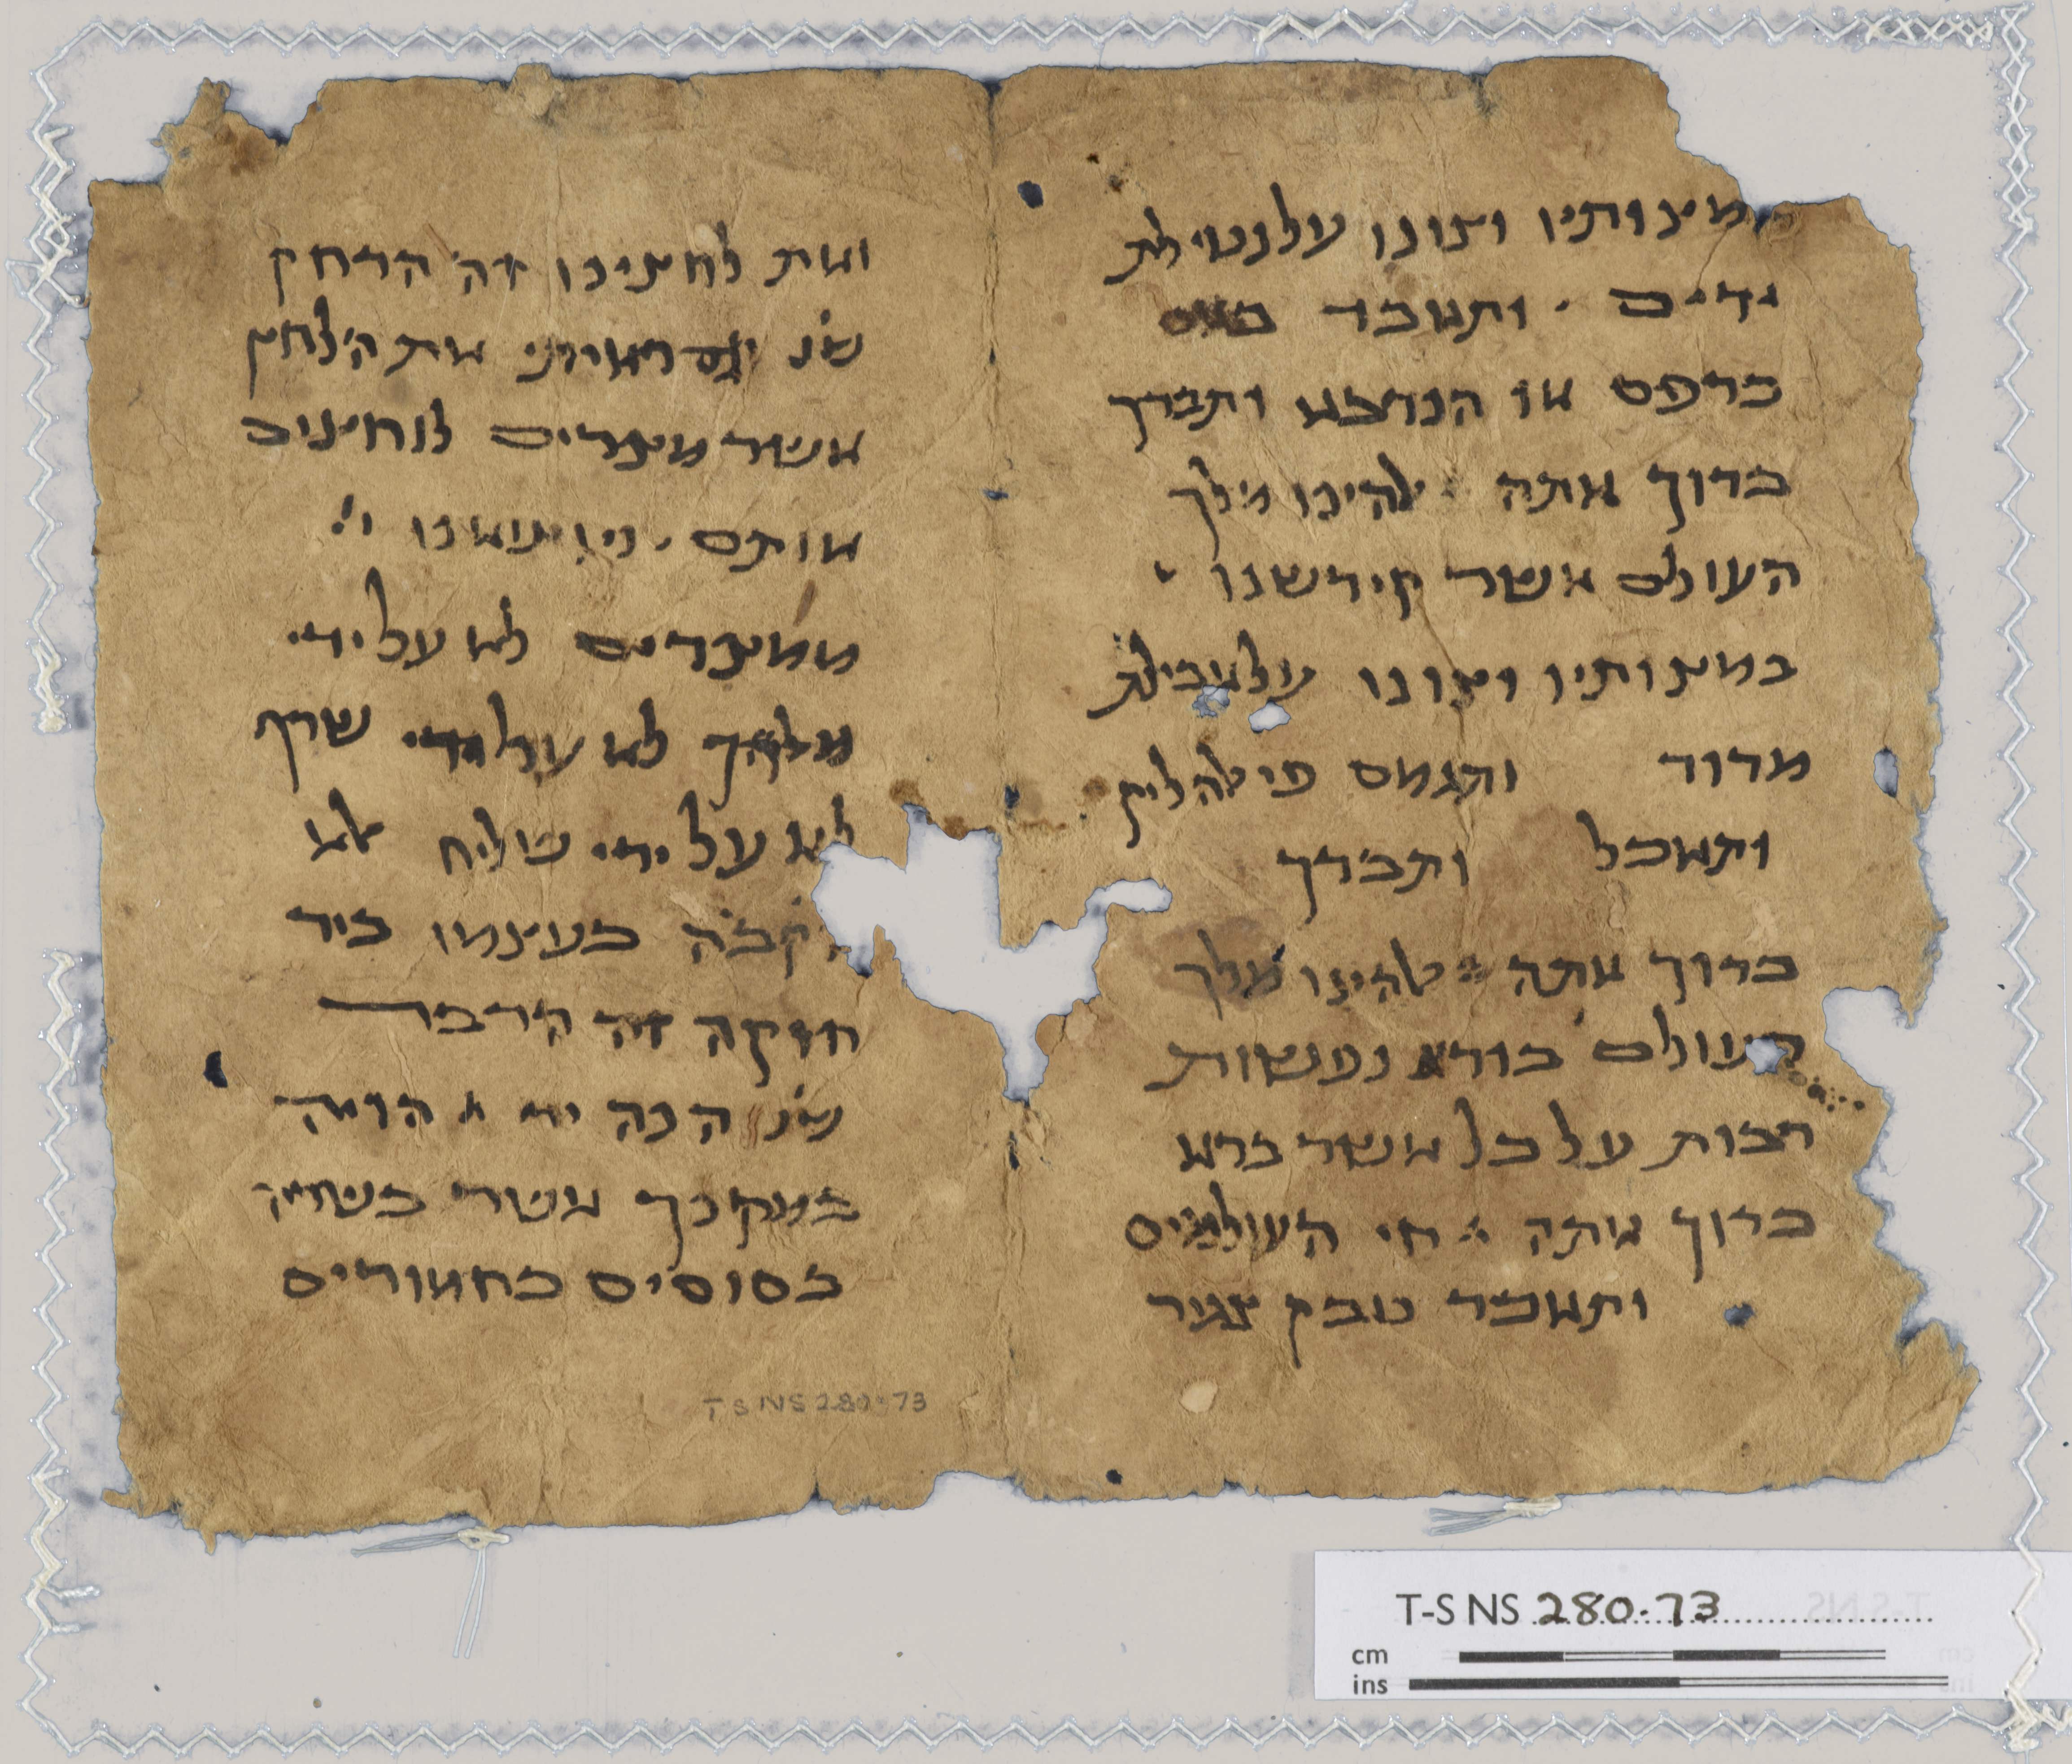 במצותיו וצונו על נטילת
ידים . ותאכד
כרפס או הנדבא ותברך
ברוך אתה יי אלהינו מלך
העולם אשר קידשנו
במצותיו וצונו על אכילת
מרור ותגמס פי אלהליק
ותאכל ותברך
ברוך אתה יי אלהינו מלך
העולם בורא נפשות
רבות על כל אשר ברא
ברוך אתה יי חי העולמים
ותאכד טבק צגיר
ואת לחצינו זה הדחק
שנ׳ וגם ראיתי את הלחץ
אשר מצרים לוחצים
אותם . ויוציאנו יי
ממצרים לא על ידי
מלאך לא על ידי שרף
לא על ידי שליח אלא
הקבה בעצמו ביד
חזקה זה הדבר
שנ׳ הנה יד יי הויה
במקנך אשר בשדה
בסוסים בחמורים
T-S NS 280.73
T-S NS 280.73
cm
ins